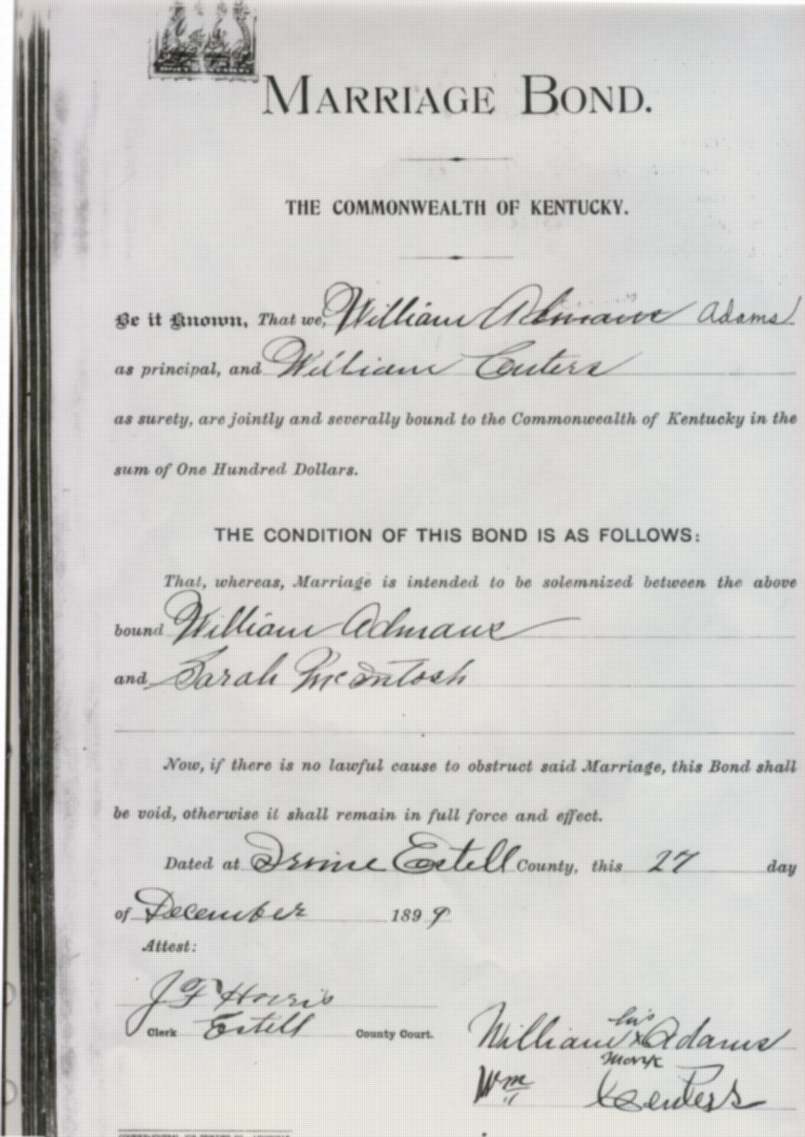 MARRIAGE BOND.
THE COMMONWEALTH OF KENTUCKY.
Be it Known, That we, William Admans Adams
as principal, and William Centers
as surety, are jointly and severally bound to the Commonwealth of Kentucky in the
sum of One Hundred Dollars.
THE CONDITION OF THIS BOND IS AS FOLLOWS:
That, whereas, Marriage is intended to be solemnized between the above
bound William Admans
and Sarah McIntosh
Now, if there is no lawful cause to obstruct said Marriage, this Bond shall
be void, otherwise it shall remain in full force and effect.
Dated at Irvine Estell County, this 27 day
of December 1899
Attest:
J F Harris
Clerk Estell County Court.
his
William x Adams
mark
Wm Centers